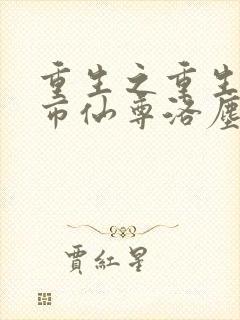 重生之重生
市仙尊洛塵
賈紅星